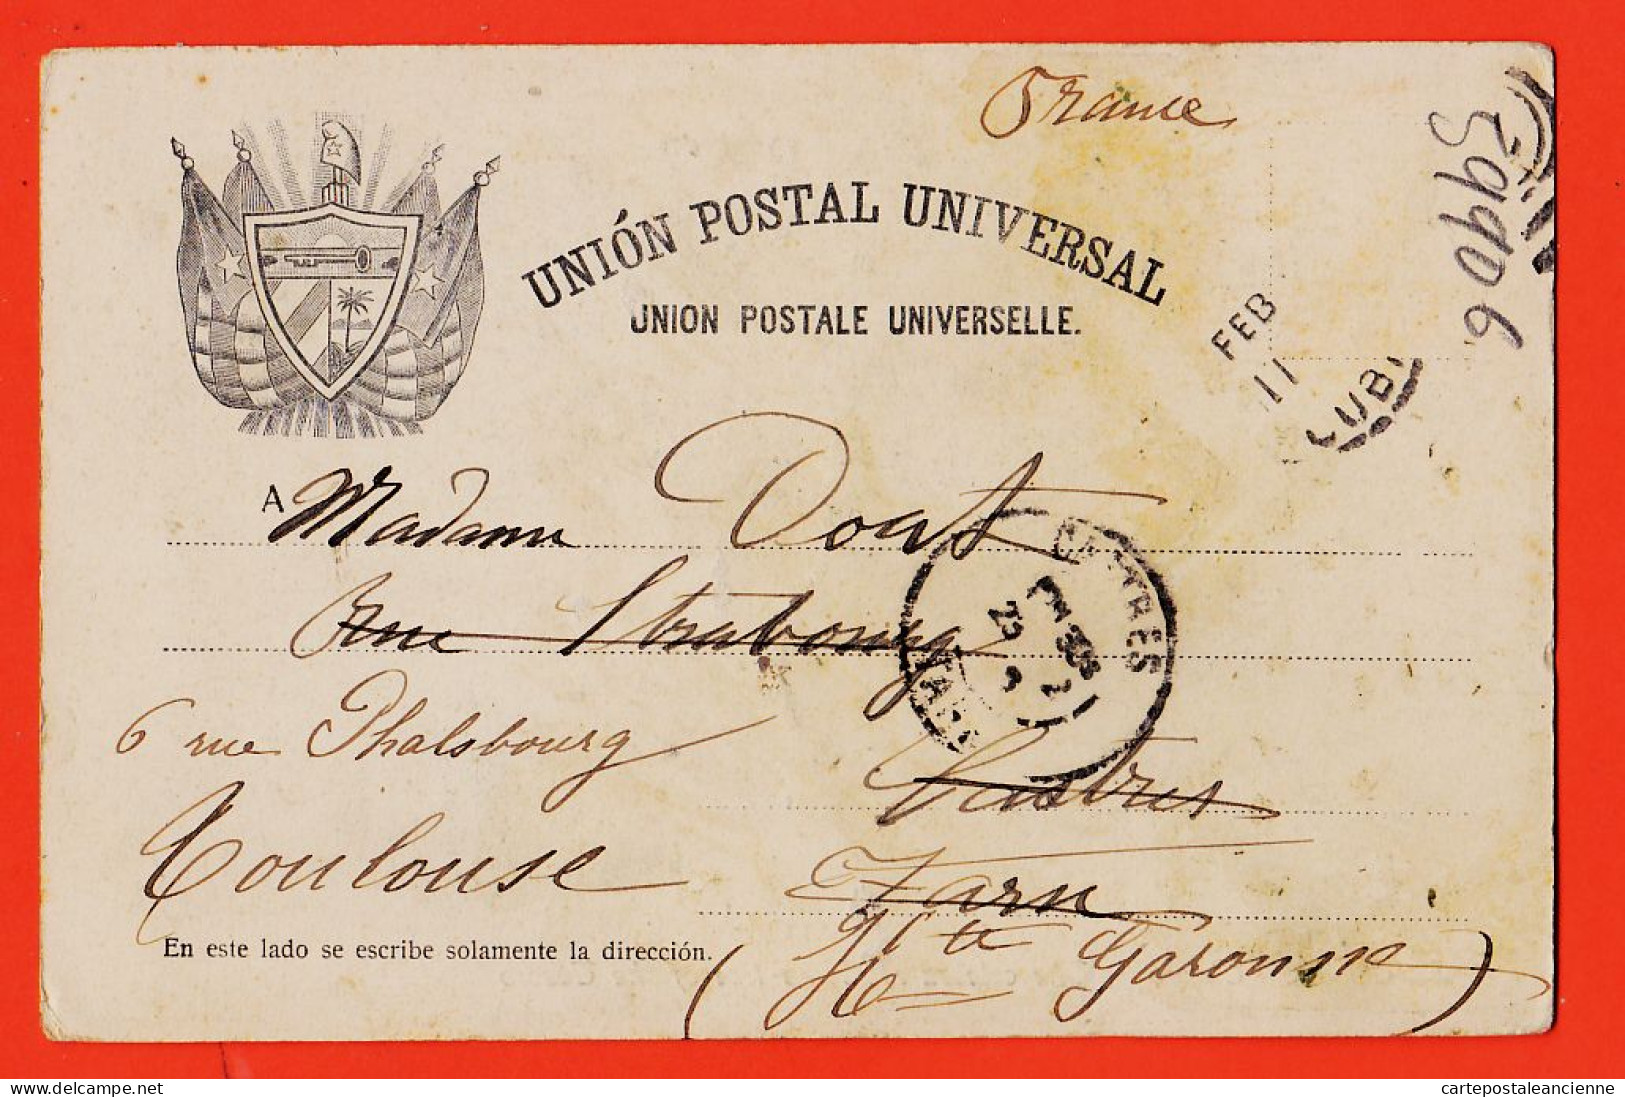 France
59906
UNIÓN POSTAL UNIVERSAL
UNION POSTALE UNIVERSELLE.
FEB
11
CUBA
A Madame Doat
CASTRES
TARN
rue Strasbourg
6 rue Phalsbourg
Castres
Toulouse
Tarn
(Hte Garonne)
En este lado se escribe solamente la dirección.
cartepostaleancienne